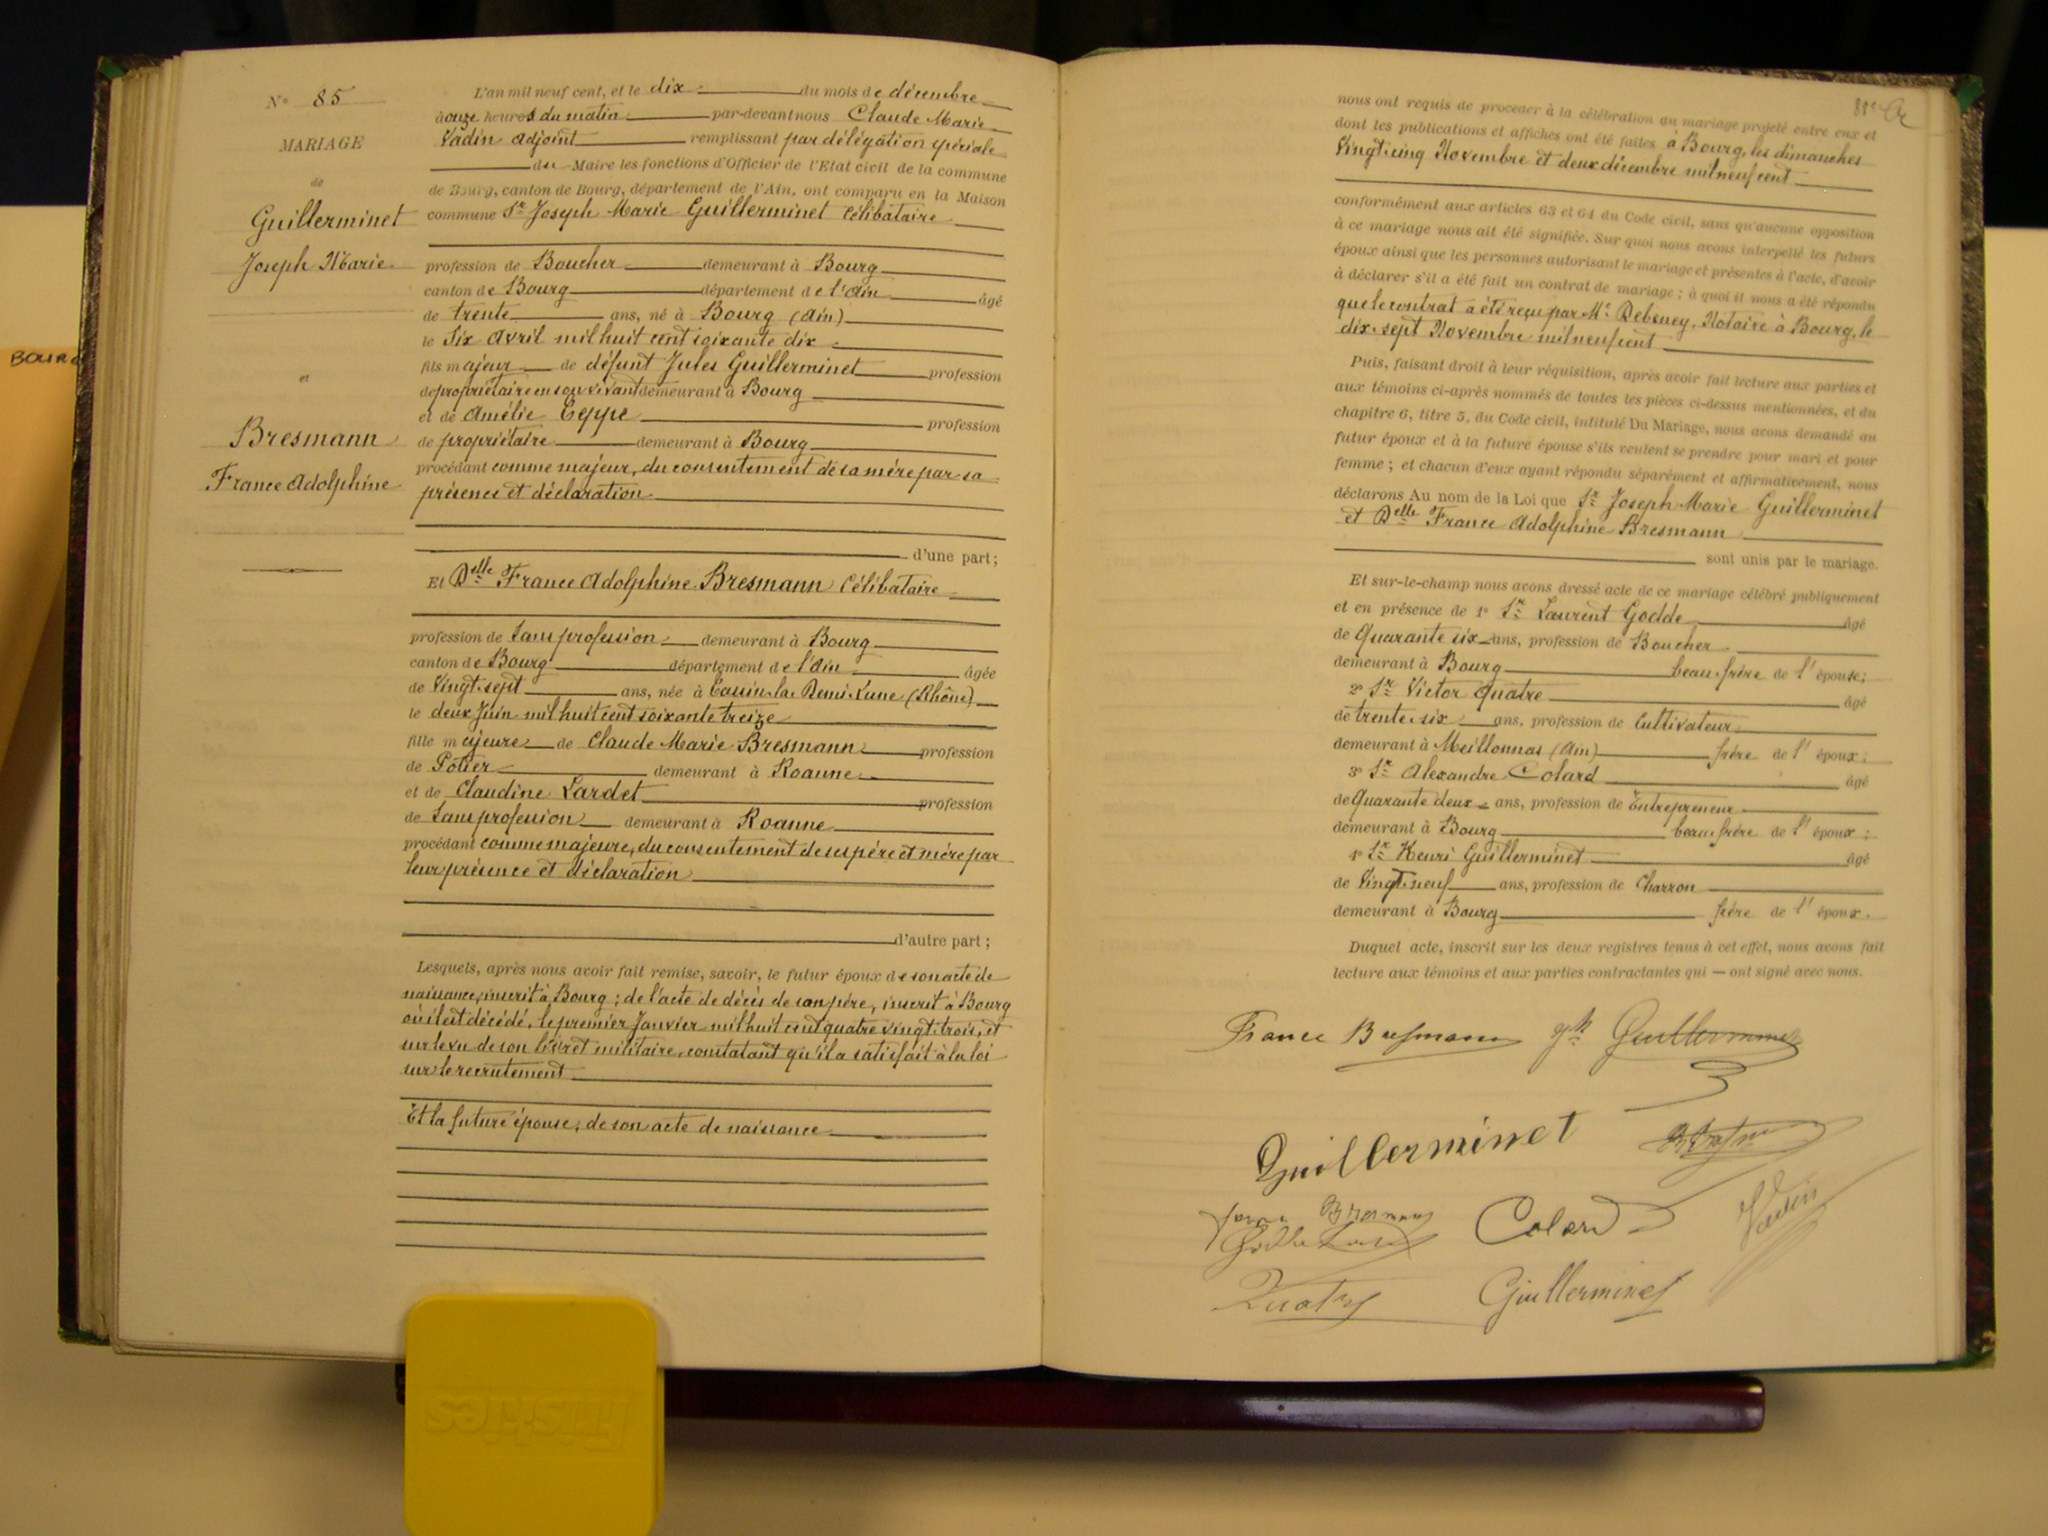 BOURG
N° 85
MARIAGE
de
Guillerminet
Joseph Marie
et
Bresmann
France Adolphine
L'an mil neuf cent, et le dix du mois de décembre
à onze heures du matin par-devant nous Claude Marie
Vadin adjoint remplissant par délégation spéciale
du Maire les fonctions d'Officier de l'Etat civil de la commune
de Bourg, canton de Bourg, département de l'Ain, ont comparu en la Maison
commune Sr Joseph Marie Guillerminet Célibataire
profession de Boucher demeurant à Bourg
canton de Bourg département de l'Ain âgé
de trente ans, né à Bourg (Ain)
le Six Avril mil huit cent soixante dix
fils majeur de défunt Jules Guillerminet profession
de propriétaire en son vivant demeurant à Bourg
et de Amélie Teppe profession
de propriétaire demeurant à Bourg
procédant comme majeur, du consentement de sa mère par sa
présence et déclaration
d'une part;
Et Delle France Adolphine Bresmann Célibataire
profession de Sans profession demeurant à Bourg
canton de Bourg département de l'Ain âgée
de Vingt sept ans, née à la Demi Lune (Rhône)
le deux Juin mil huit cent soixante treize
fille majeure de Claude Marie Bresmann profession
de Potier demeurant à Roanne
et de Claudine Lardet profession
de Sans profession demeurant à Roanne
procédant comme majeure, du consentement de ses père et mère par
leur présence et déclaration
d'autre part;
Lesquels, après nous avoir fait remise, savoir, le futur époux de son acte de
naissance, inscrit à Bourg; de l'acte de décès de son père, inscrit à Bourg
où il est décédé, le premier Janvier mil huit cent quatre vingt trois, et
sur le vu de son livret militaire, constatant qu'il a satisfait à la loi
sur le recrutement
Et la future épouse, de son acte de naissance
nous ont requis de procéder à la célébration du mariage projeté entre eux et
dont les publications et affiches ont été faites à Bourg, les dimanches
Vingt cinq Novembre et deux décembre mil neuf cent
conformément aux articles 63 et 64 du Code civil, sans qu'aucune opposition
à ce mariage nous ait été signifiée. Sur quoi nous avons interpellé les futurs
époux ainsi que les personnes autorisant le mariage et présentes à l'acte, d'avoir
à déclarer s'il a été fait un contrat de mariage; à quoi il nous a été répondu
que le contrat a été reçu par Me Debeney, Notaire à Bourg, le
dix sept Novembre mil neuf cent
Puis, faisant droit à leur réquisition, après avoir fait lecture aux parties et
aux témoins ci-après nommés de toutes les pièces ci-dessus mentionnées, et du
chapitre 6, titre 5, du Code civil, intitulé Du Mariage, nous avons demandé au
futur époux et à la future épouse s'ils veulent se prendre pour mari et pour
femme; et chacun d'eux ayant répondu séparément et affirmativement, nous
déclarons Au nom de la Loi que Sr Joseph Marie Guillerminet
et Delle France Adolphine Bresmann
sont unis par le mariage.
Et sur-le-champ nous avons dressé acte de ce mariage célébré publiquement
et en présence de 1° Sr Laurent Godde âgé
de Quarante six ans, profession de Boucher
demeurant à Bourg beau frère de l'épouse;
2° Sr Victor Quatre âgé
de trente six ans, profession de Cultivateur
demeurant à Meillonnas (Ain) frère de l'époux;
3° Sr Alexandre Colard âgé
de Quarante deux ans, profession de Entrepreneur
demeurant à Bourg beau frère de l'époux;
4° Sr Henri Guillerminet âgé
de Vingt neuf ans, profession de Charron
demeurant à Bourg frère de l'époux.
Duquel acte, inscrit sur les deux registres tenus à cet effet, nous avons fait
lecture aux témoins et aux parties contractantes qui — ont signé avec nous.
France Bresmann Guillerminet
Guillerminet
Bresmann Colard Vadin
Quatre Guillerminet